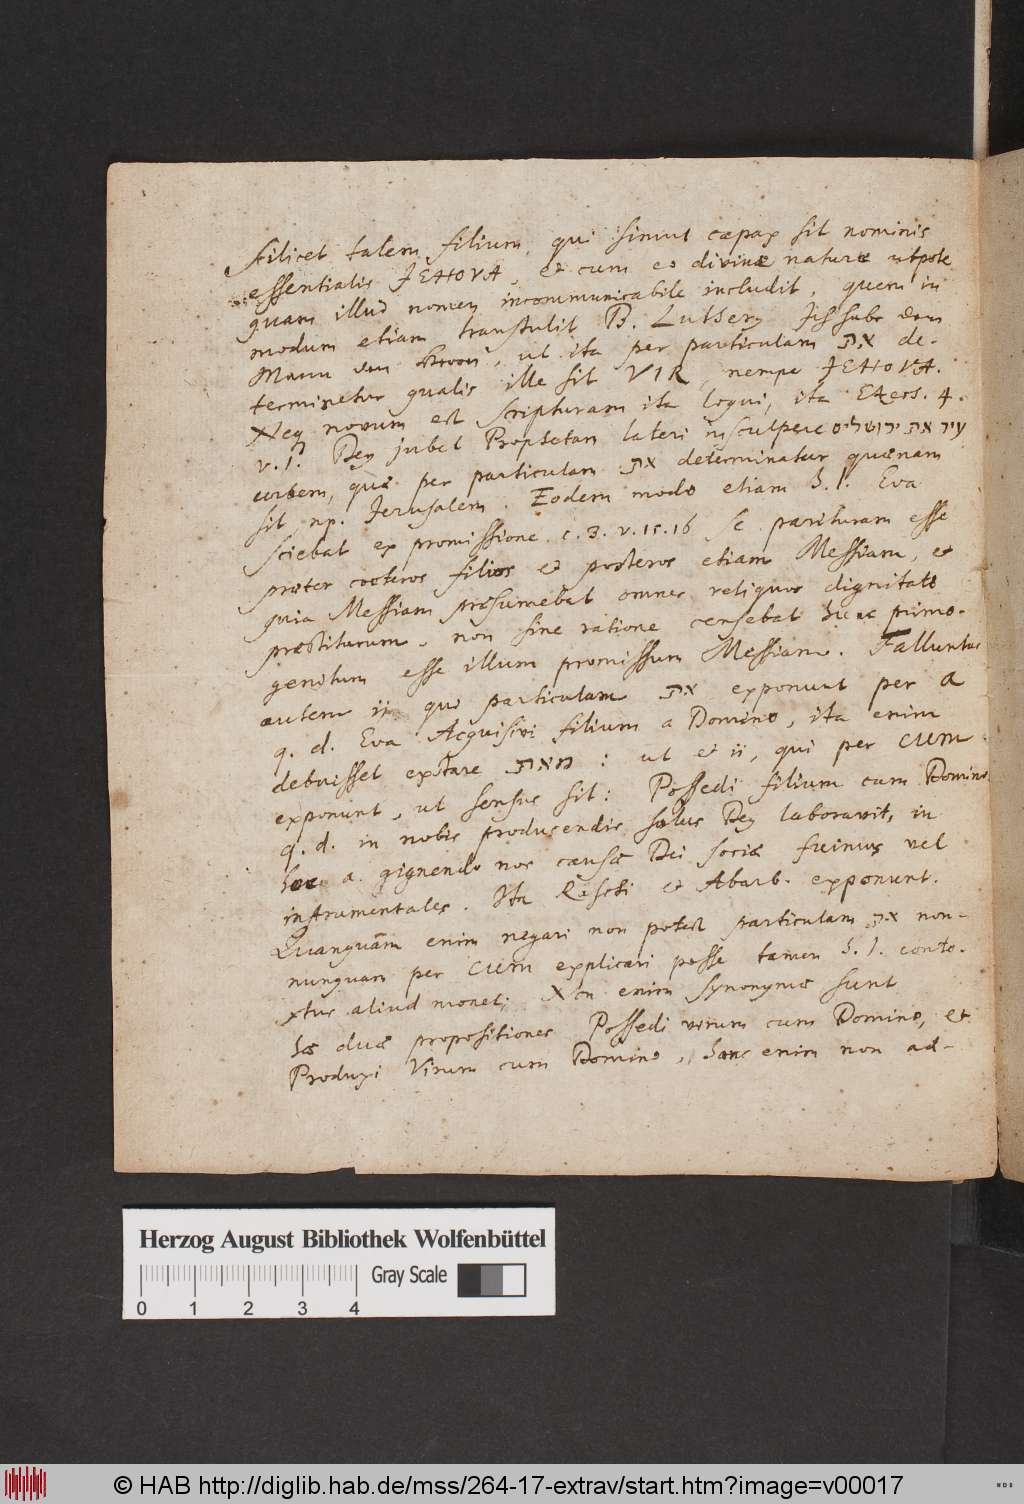 Scilicet talem filium, qui simul capax sit nominis
essentialis JEHOVA, et cum eo divinæ naturæ utpote
quam illud nomen incommunicabile includit, quem in
modum etiam transtulit B. Luther9 Ich habe den
Mann den Herrn, ut ita per particulam את de-
terminetur qualis ille sit VIR, nempe JEHOVA.
Neq novum est scripturam ita loqui, ita Ezech. 4.
v. 1. De9 jubet Prophetam lateri insculpere עיר את ירושלים
urbem, quæ per particulam את determinatur quænam
sit np. Jerusalem. Eodem modo etiam h. l. Eva
sciebat ex promissione c. 3. v. 15. 16 se parituram esse
præter cæteros filios et posteros etiam Messiam, et
quia Messiam præsumebat omnes reliquos dignitate
præstiturum, non sine ratione censebat hunc primo-
genitum esse illum promissum Messiam. Falluntur
autem ii qui particulam את exponunt per a
q. d. Eva Acquisivi filium a Domino, ita enim
debuisset extare מאת: ut et ii, qui per CUM
exponunt, ut sensus sit: Possedi filium cum Domino
q. d. in nobis producendis solus De9 laboravit, in
hoc a. gignendo nos causæ Dei sociæ fuimus vel
instrumentales. Ita Raschi et Abarb. exponunt.
Quanquam enim negari non potest particulam את non-
nunquam per CUM explicari posse tamen h. l. conte-
xtus aliud monet; Non enim synonymæ sunt
hæ duæ propositiones Possedi virum cum Domino, et
Produxi Virum cum Domino, hanc enim non ad-
Herzog August Bibliothek Wolfenbüttel
0 1 2 3 4 Gray Scale
© HAB http://diglib.hab.de/mss/264-17-extrav/start.htm?image=v00017